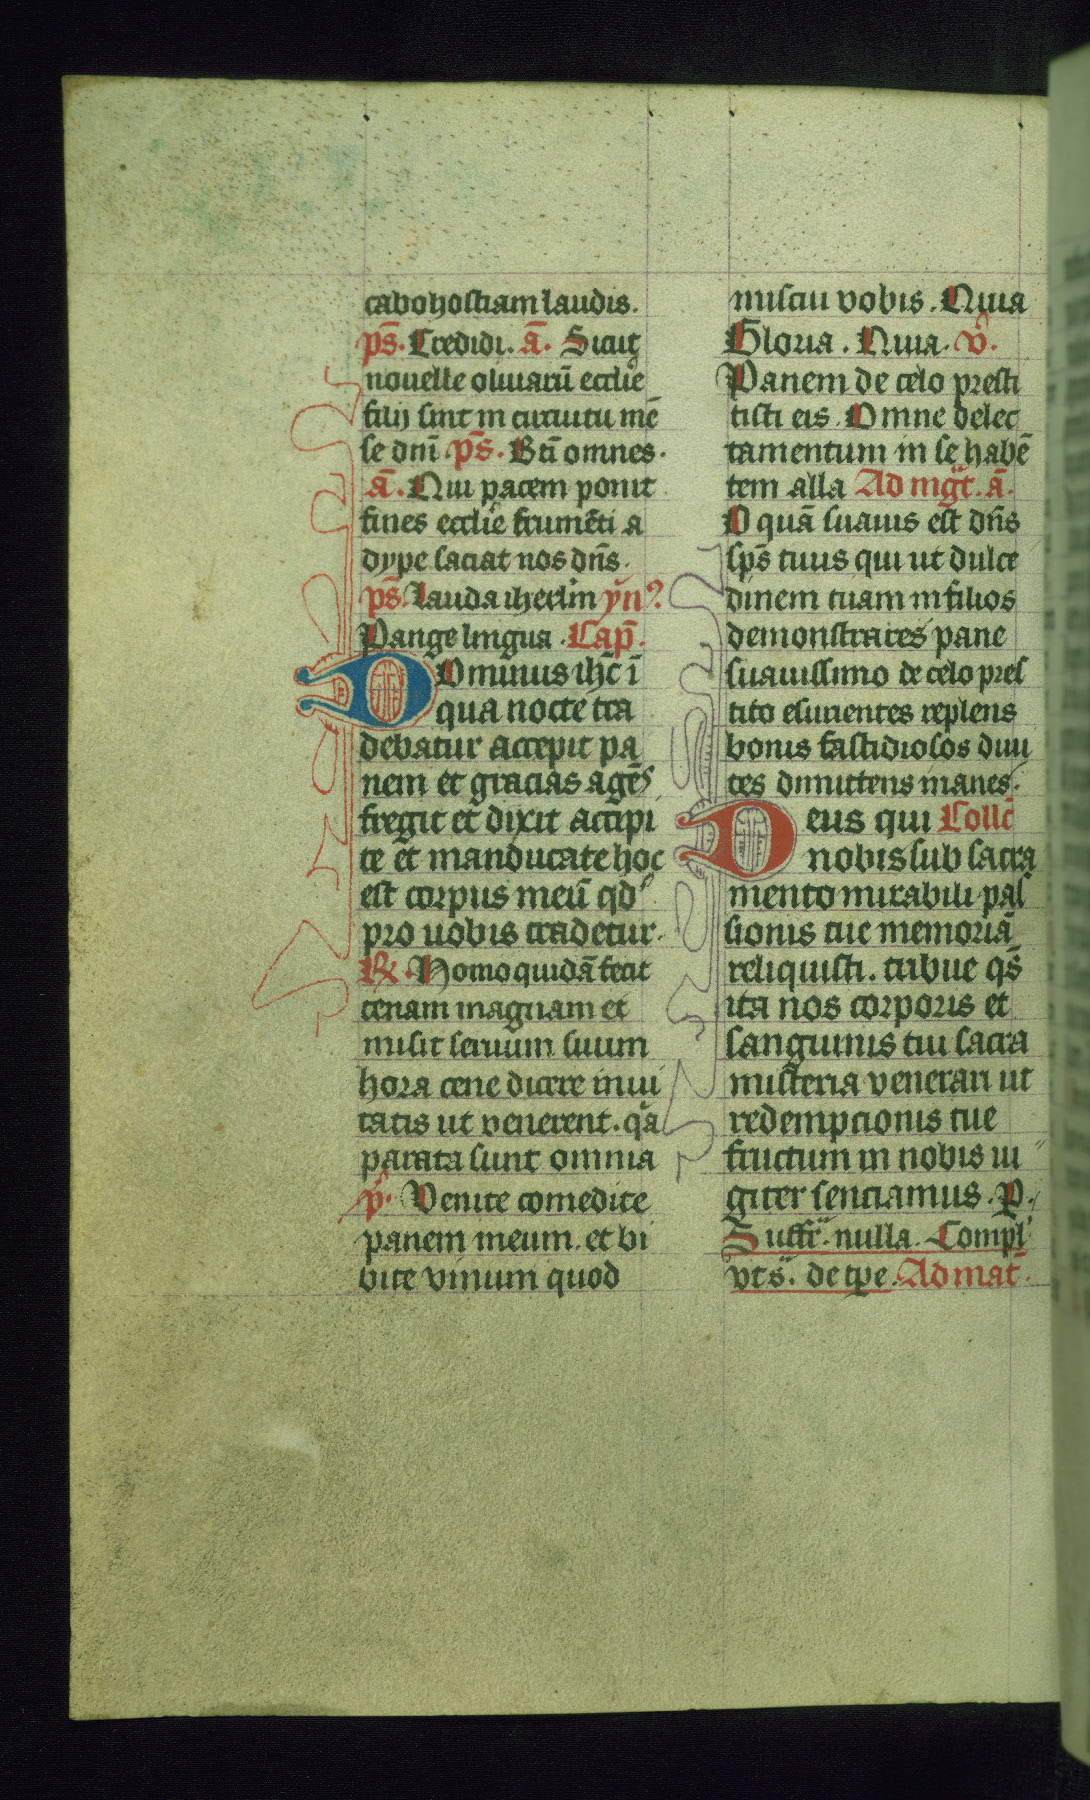 cabo hostiam laudis.
ps̄. Credidi. ā. Sicut
nouelle oliuarū eccl̄ie
filij sint in circuitu mē
se dn̄i ps̄. Bt̄i omnes.
ā. Qui pacem ponit
fines eccl̄ie frumēti a
dype saciat nos dn̄s.
ps̄. Lauda iherl̄m yn̄
Pange lingua. Cap̄.
Dominus ihc̄ ī
qua nocte tra
debatur accepit pa
nem et gracias agēs
fregit et dixit accipi
te et manducate hoc
est corpus meū qd
pro uobis tradetur.
℟. Homo quidā fecit
cenam magnam et
misit seruum suum
hora cene dicere inui
tatis ut venerent. qa
parata sunt omnia
p̄. Venite comedite
panem meum. et bi
bite vinum quod
miscui vobis. Quia
Gloria. Quia. v̄.
Panem de celo presti
tisti eis. Omne delec
tamentum in se habē
tem alla Ad mgt̄. ā.
O quā suauis est dn̄s
sps̄ tuus qui ut dulce
dinem tuam in filios
demonstrares pane
suauissimo de celo pres
tito esurientes replens
bonis fastidiosos diui
tes dimittens inanes.
Deus qui Collc̄
nobis sub sacra
mento mirabili pas
sionis tue memoriā
reliquisti. tribue qs̄
ita nos corporis et
sanguinis tui sacra
misteria venerari ut
redempcionis tue
fructum in nobis iu
giter senciamus. P.
Suffr̄. nulla. Compl̄
vt s. de tp̄e. Ad mat̄.